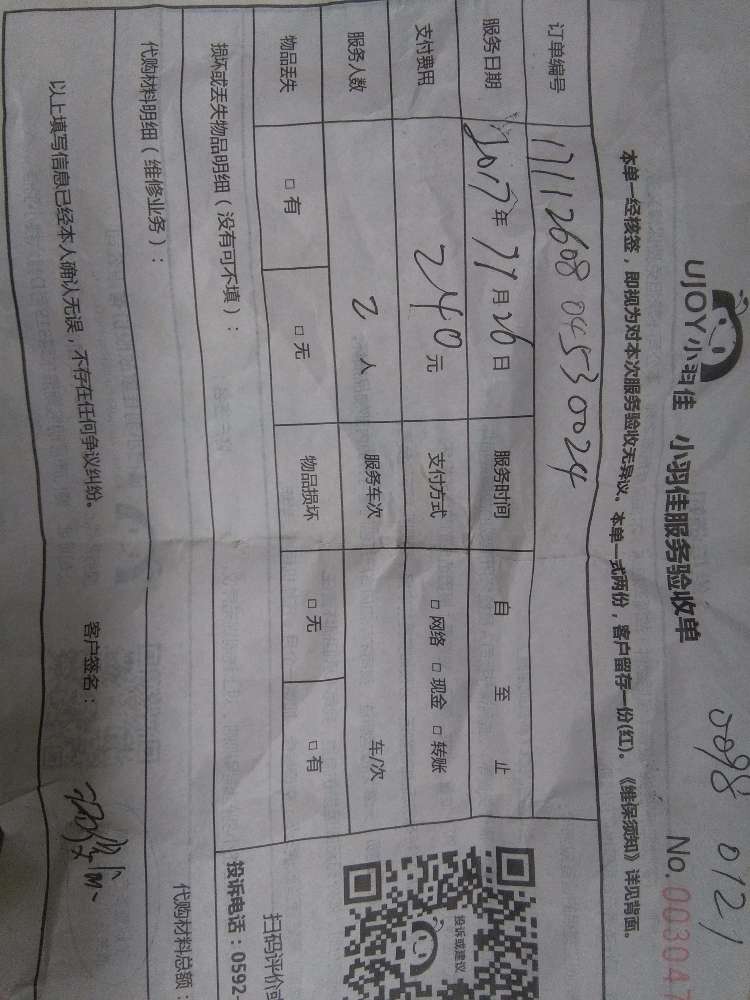 5098 0121
UJOY小羽佳 小羽佳服务验收单
No.00304
本单一经核签，即视为对本次服务验收无异议。本单一式两份，客户留存一份(红)。《维保须知》详见背面。
订单编号 1711260804530024
服务日期 2017年11月26日 服务时间 自 至 止
支付费用 240元 支付方式 □网络 □现金 □转账
服务人数 2人 服务车次 车/次
物品丢失 □有 □无 物品损坏 □无 □有
损坏或丢失物品明细（没有可不填）：
代购材料明细（维修业务）：
代购材料总额：
以上填写信息已经本人确认无误，不存在任何争议纠纷。 客户签名：
投诉或建议
扫码评价或
投诉电话：0592-